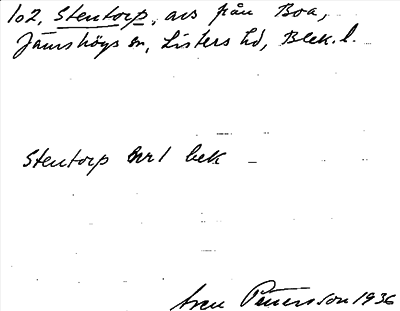 102. Stentorp, avs från Boa,
Jämshögs sn, Listers hd, Blek. l.
Stentorp nr 1 bek –
Sven Petersson 1936